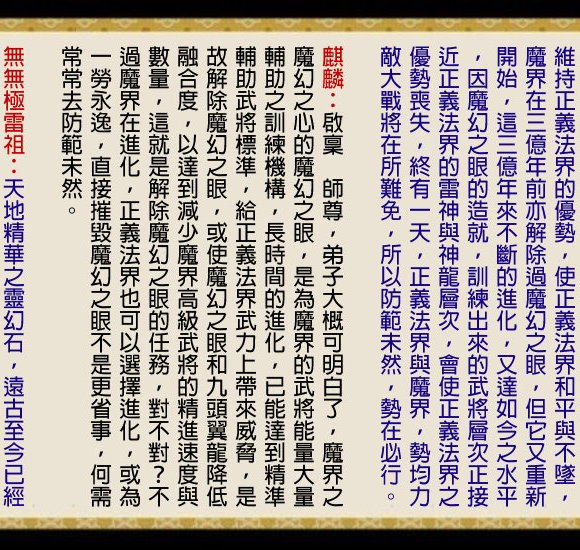 維持正義法界的優勢，使正義法界和平與不墜，
魔界在三億年前亦解除過魔幻之眼，但它又重新
開始，這三億年來不斷的進化，又達如今之水平
，因魔幻之眼的造就，訓練出來的武將層次正接
近正義法界的雷神與神龍層次，會使正義法界之
優勢喪失，終有一天，正義法界與魔界，勢均力
敵大戰將在所難免，所以防範未然，勢在必行。
麒麟：啟稟　師尊，弟子大概可明白了，魔界之
魔幻之心的魔幻之眼，是為魔界的武將能量大量
輔助之訓練機構，長時間的進化，已能達到精準
輔助武將標準，給正義法界武力上帶來威脅，是
故解除魔幻之眼，或使魔幻之眼和九頭翼龍降低
融合度，以達到減少魔界高級武將的精進速度與
數量，這就是解除魔幻之眼的任務，對不對？不
過魔界在進化，正義法界也可以選擇進化，或為
一勞永逸，直接摧毀魔幻之眼不是更省事，何需
常常去防範未然。
無無極雷祖：天地精華之靈幻石，遠古至今已經